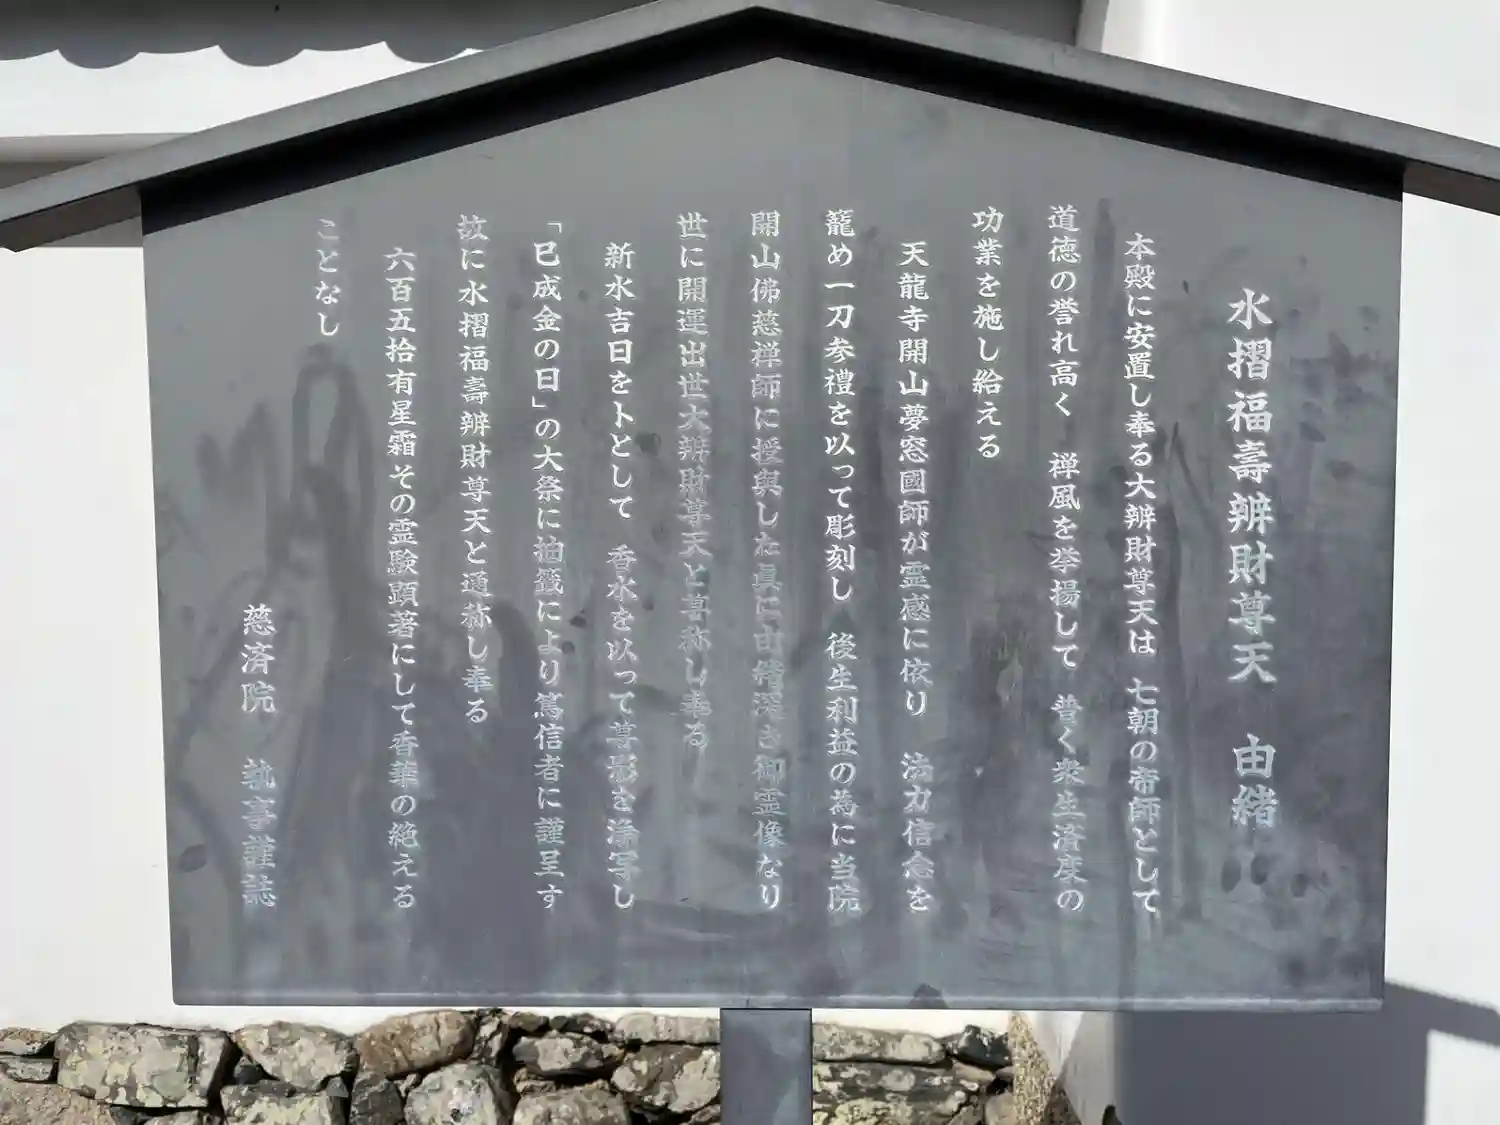 水摺福壽辨財尊天　由緒
本殿に安置し奉る大辨財尊天は　七朝の帝師として
道徳の誉れ高く　禅風を挙揚して　普く衆生済度の
功業を施し給える
天龍寺開山夢窓國師が霊感に依り　法力信念を
籠め一刀参禮を以って彫刻し　後生利益の為に当院
開山佛慈禅師に授與した眞に由緒深き御霊像なり
世に開運出世大辨財尊天と尊称し奉る
新水吉日を卜として　香水を以って尊影を謹写し
「巳成金の日」の大祭に抽籤により篤信者に謹呈す
故に水摺福壽辨財尊天と通称し奉る
六百五拾有星霜その霊験顕著にして香華の絶える
ことなし
慈済院　執事謹誌